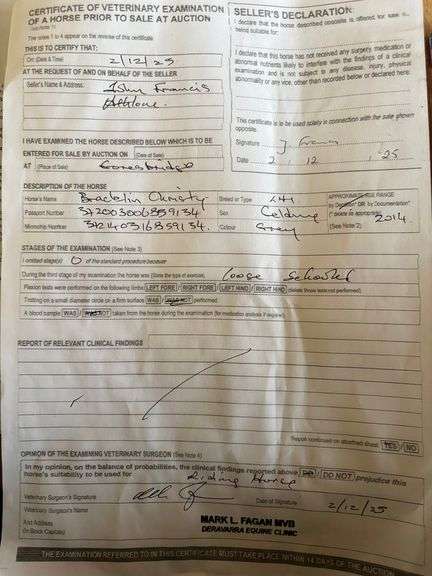 CERTIFICATE OF VETERINARY EXAMINATION
OF A HORSE PRIOR TO SALE AT AUCTION
The notes 1 to 4 appear on the reverse of this certificate
THIS IS TO CERTIFY THAT:
On: (Date & Time) 2/12/25
AT THE REQUEST OF AND ON BEHALF OF THE SELLER
Seller's Name & Address: John Francis
Athlone
I HAVE EXAMINED THE HORSE DESCRIBED BELOW WHICH IS TO BE
ENTERED FOR SALE BY AUCTION ON (Date of Sale)
AT (Place of Sale) Goresbridge
SELLER'S DECLARATION:
I declare that the horse described opposite is offered for sale as
being suitable for:
I declare that this horse has not received any surgery, medication or
abnormal nutrients likely to interfere with the findings of a clinical
examination and is not subject to any disease, injury, physical
abnormality or any vice, other than recorded below or declared here:
This certificate is to be used solely in connection with the sale shown
opposite.
Signature J.
Date 2. 12. '25
DESCRIPTION OF THE HORSE
Horse's Name Bracklin Christy
Breed or Type
APPROXIMATE AGE RANGE
by Dentition* OR by Documentation*
(* delete as appropriate)
2014
(See Note 2)
Passport Number
Sex Gelding
Microchip Number
Colour Grey
STAGES OF THE EXAMINATION (See Note 3)
I omitted stage(s) 0 of the standard procedure because
During the third stage of my examination the horse was (State the type of exercise) loose schooled
Flexion tests were performed on the following limbs LEFT FORE / RIGHT FORE / LEFT HIND / RIGHT HIND (delete those not performed)
Trotting on a small diameter circle on a firm surface WAS / WAS NOT performed
A blood sample WAS / WAS NOT taken from the horse during the examination (for medication analysis if required)
REPORT OF RELEVANT CLINICAL FINDINGS
Report continued on attached sheet YES / NO
OPINION OF THE EXAMINING VETERINARY SURGEON (See Note 4)
In my opinion, on the balance of probabilities, the clinical findings reported above DO / DO NOT prejudice this
horse's suitability to be used for Riding Horse
Veterinary Surgeon's Signature
Date of Signature 2/12/25
Veterinary Surgeon's Name
And Address
(In Block Capitals)
MARK L. FAGAN MVB
DERAVARRA EQUINE CLINIC
THE EXAMINATION REFERRED TO IN THIS CERTIFICATE MUST TAKE PLACE WITHIN 14 DAYS OF THE AUCTION